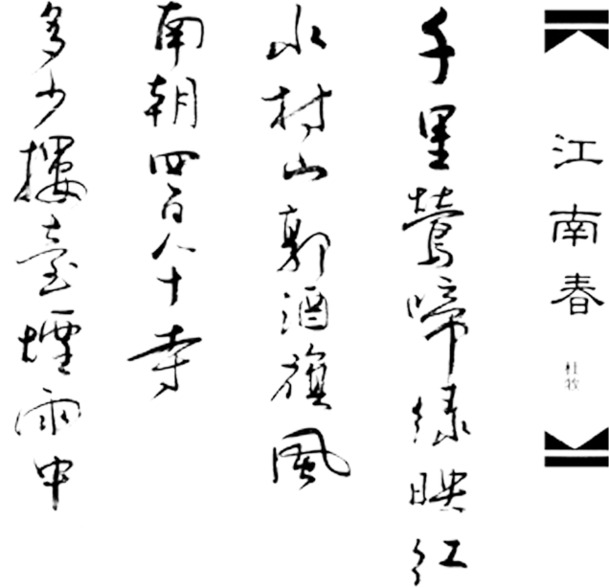 江南春
杜牧
千里鶯啼綠映紅
水村山郭酒旗風
南朝四百八十寺
多少樓臺煙雨中